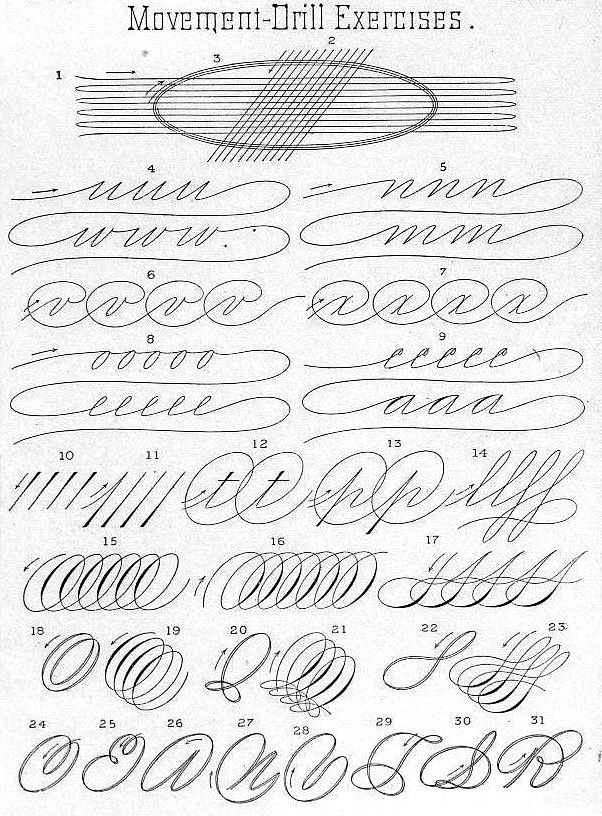 Movement-Drill Exercises.
2
3
1
4 5
uuu nnn
www mm
6 7
v v v v x x x x
8 9
ooooo ccccc
eeeee aaa
10 11 12 13 14
t t p p
15 16 17
18 19 20 21 22 23
24 25 26 27 28 29 30 31
O E A N T S R